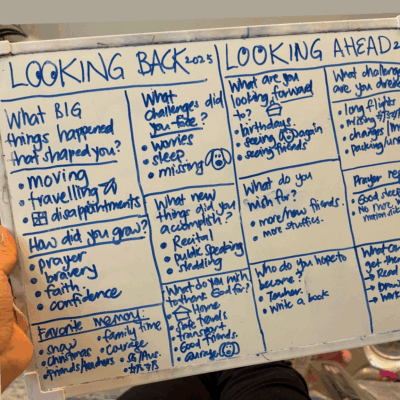 LOOKING BACK 2025
What BIG
things happened
that shaped you?
• moving
• travelling
• disappointments
How did you grow?
• prayer
• bravery
• faith
• confidence
Favorite memory:
• snow
• Christmas
• family time
• courage
What
challenges did
you face?
• worries
• sleep
• missing
What new
things did you
accomplish?
• Recital
• public speaking
• sledding
What do you wish
to thank God for?
• Home
• safe travels
• transport
• Good friends.
• courage
LOOKING AHEAD 2
What are you
looking forward
to?
• birthdays.
• seeing again
• seeing friends
What do you
wish for?
• more/new friends.
• more stuffies.
Who do you hope to
become?
• Teacher.
• write a book
What challenge
are you
• long flights
• missing
• changes
• packing/un
Prayer re
• Good sleep
• No more
What can
get the
→ Read
→ Draw
→ work